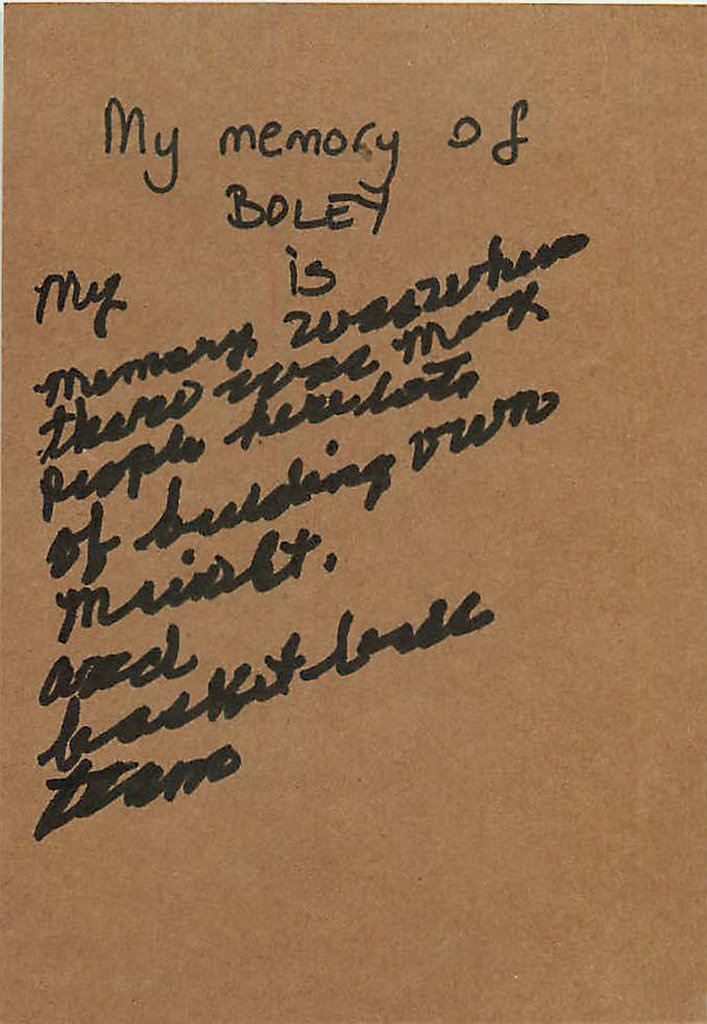 My memory of
BOLEY
is
My
memory was when
there was many
people here lots
of building own
and
basket ball
team